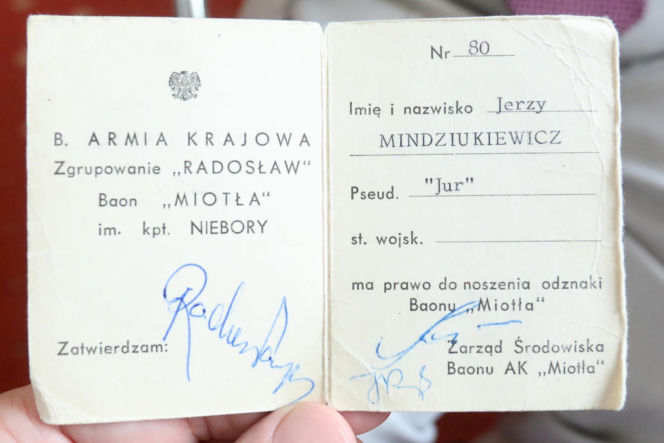 B. ARMIA KRAJOWA
Zgrupowanie „RADOSŁAW"
Baon „MIOTŁA"
im. kpt. NIEBORY
Zatwierdzam:
Nr 80
Imię i nazwisko Jerzy
MINDZIUKIEWICZ
Pseud. "Jur"
st. wojsk.
ma prawo do noszenia odznaki
Baonu „Miotła"
Zarząd Środowiska
Baonu AK „Miotła"